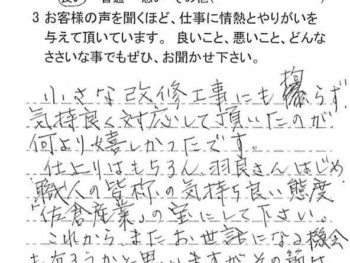 3 お客様の声を聞くほど、仕事に情熱とやりがいを
与えて頂いています。良いこと、悪いこと、どんな
ささいな事でもぜひ、お聞かせ下さい。
小さな改修工事にも らず、
気持良く対応して頂いたのが
何より嬉しかったです。
仕上りはもちろん、羽良さんはじめ
職人の皆称の気持ち良い態度
「佐倉産業」の宝にして下さい。
これから、またお世話になる機会
もあろうかと思いますがその節は